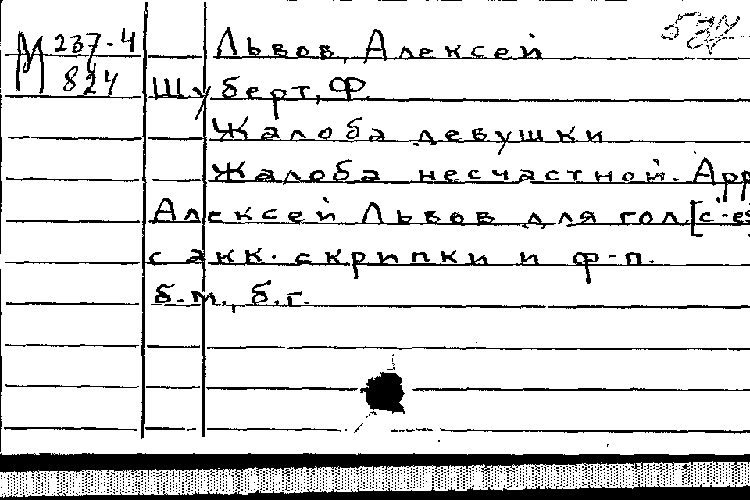 М 237-4
824
Львов, Алексей
Шуберт, Ф.
Жалоба девушки
Жалоба несчастной. Арр
Алексей Львов для гол[с-es
с акк. скрипки и ф-п.
б.м., б.г.